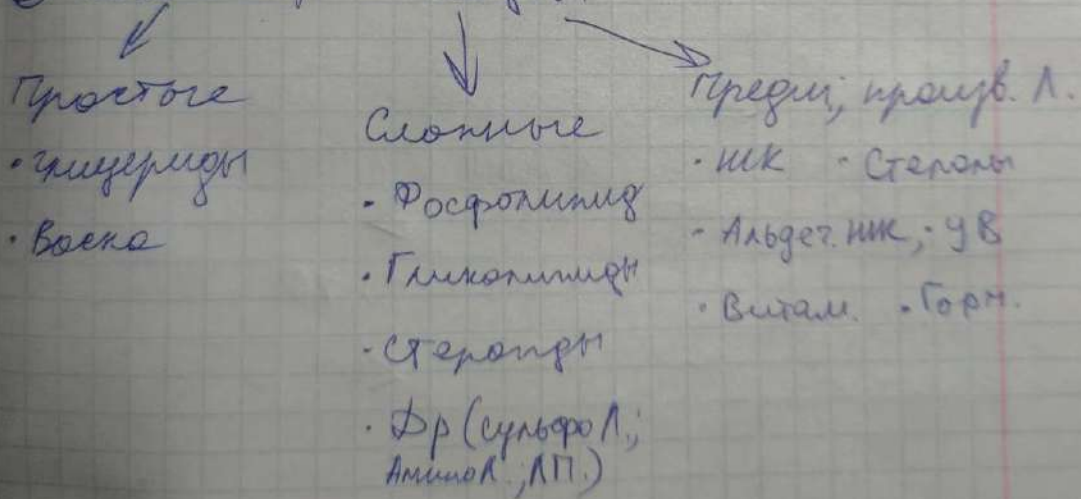 Простые
• глицериды
• Воска
Сложные
• Фосфолипид
• Гликолипиды
• Стероиды
• Др (сульфоЛ.;
АминоЛ.; ЛП.)
Предш; произв. Л.
• ЖК • Стеролы
• Альдег. ЖК, • УВ
• Витам. • Горм.